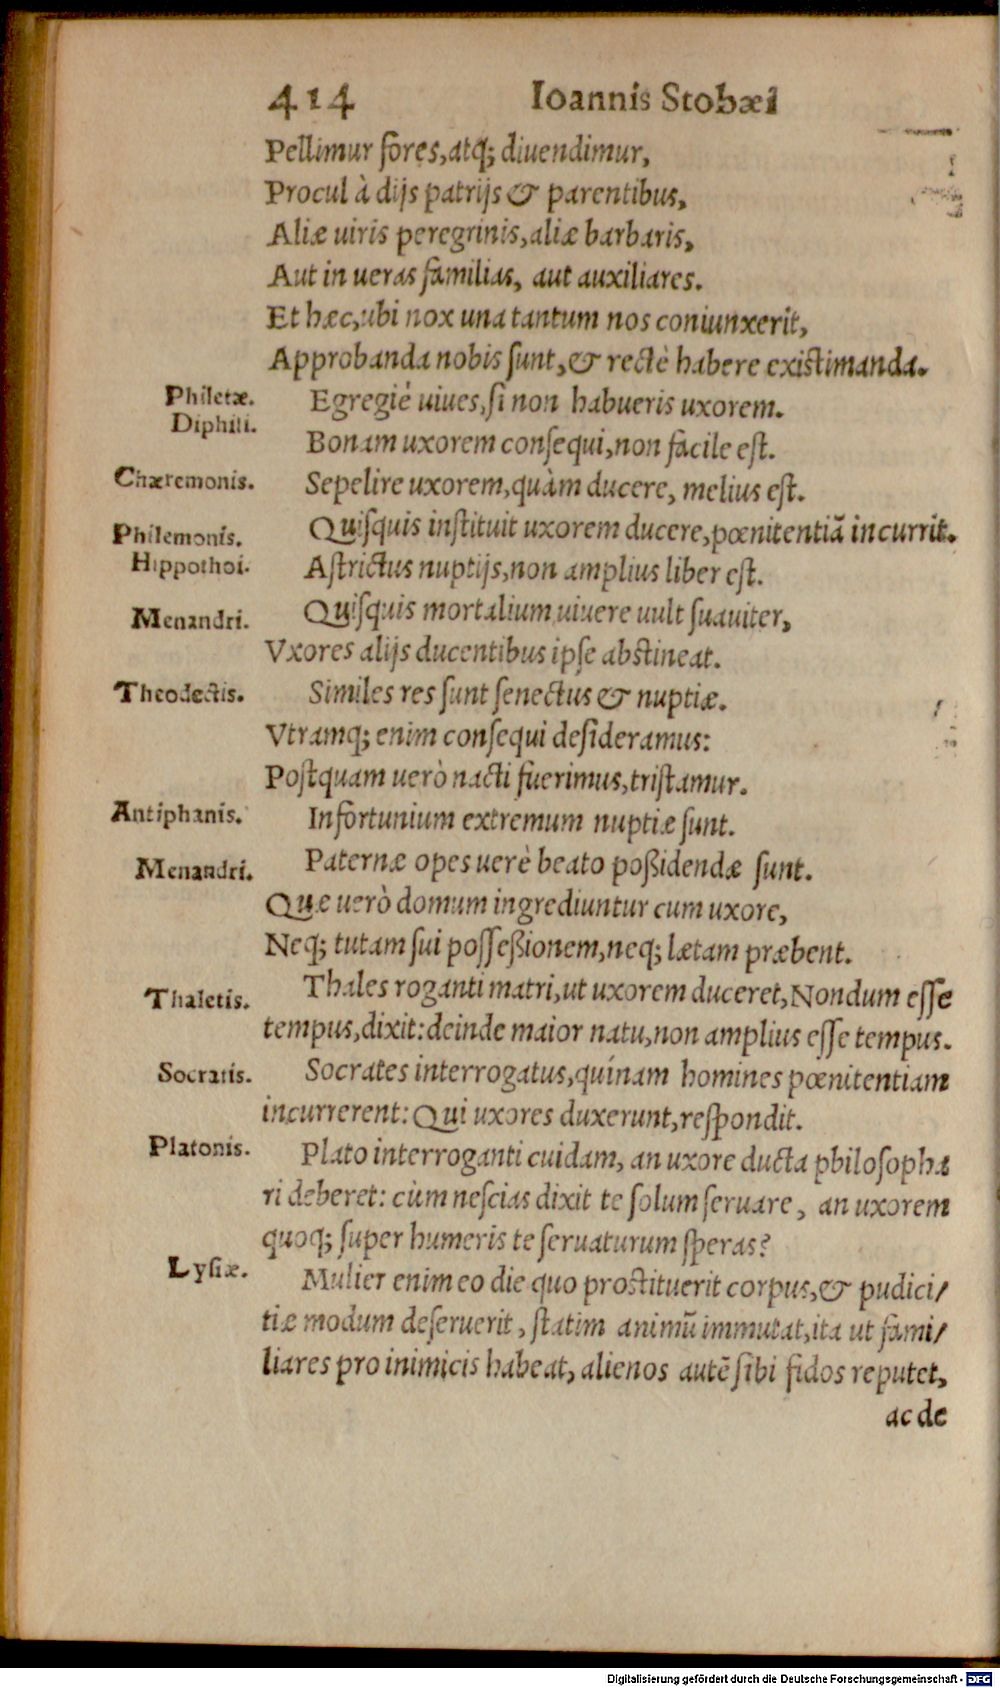 414 Ioannis Stobæi
Pellimur fores, atq; diuendimur,
Procul à dijs patrijs & parentibus,
Aliæ uiris peregrinis, aliæ barbaris,
Aut in ueras familias, aut auxiliares.
Et hæc, ubi nox una tantum nos coniunxerit,
Approbanda nobis sunt, & rectè habere existimanda.
Philetæ. Egregié uiues, si non habueris uxorem.
Diphili. Bonam uxorem consequi, non facile est.
Chæremonis. Sepelire uxorem, quàm ducere, melius est.
Philemonis. Quisquis instituit uxorem ducere, pœnitentiā incurrit.
Hippothoi. Astrictus nuptijs, non amplius liber est.
Menandri. Quisquis mortalium uiuere uult suauiter,
Vxores alijs ducentibus ipse abstineat.
Theodectis. Similes res sunt senectus & nuptiæ.
Vtramq; enim consequi desideramus:
Postquam uerò nacti fuerimus, tristamur.
Antiphanis. Infortunium extremum nuptiæ sunt.
Menandri. Paternæ opes uerè beato poßidendæ sunt.
Quæ uerò domum ingrediuntur cum uxore,
Neq; tutam sui posseßionem, neq; lætam præbent.
Thaletis. Thales roganti matri, ut uxorem duceret, Nondum esse
tempus, dixit: deinde maior natu, non amplius esse tempus.
Socratis. Socrates interrogatus, quínam homines pœnitentiam
incurrerent: Qui uxores duxerunt, respondit.
Platonis. Plato interroganti cuidam, an uxore ducta philosopha
ri deberet: cùm nescias dixit te solum seruare, an uxorem
quoq; super humeris te seruaturum speras?
Lysiæ. Mulier enim eo die quo prostituerit corpus, & pudici/
tiæ modum deseruerit, statim animū immutat, ita ut fami/
liares pro inimicis habeat, alienos autē sibi fidos reputet,
ac de
Digitalisierung gefördert durch die Deutsche Forschungsgemeinschaft - DFG